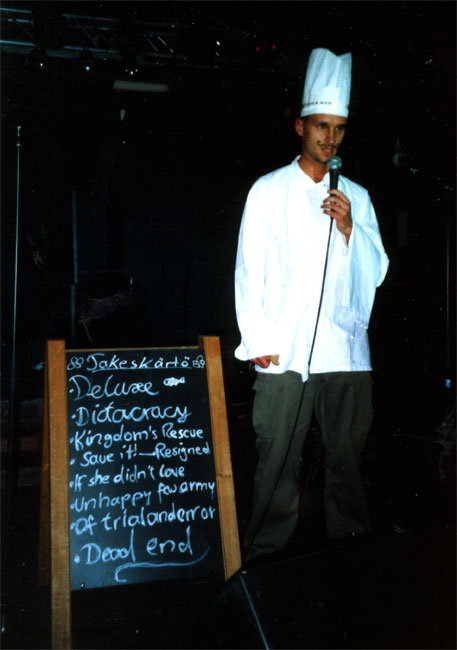 Jakeskärtö
Deluxe
· Diatacracy
· Kingdom's Rescue
· Save it! – Resigned
· If she didn't love
· Unhappy few army
· Of trialanderror
· Dead end